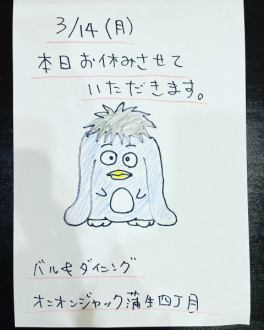 3/14(月)
本日お休みさせて
いただきます。
バル&ダイニング
オニオンジャック蒲生四丁目